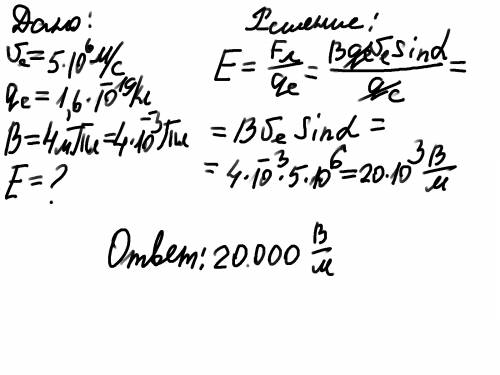 Дано:
Vₑ = 5·10⁶ м/с
qₑ = 1,6·10⁻¹⁹ Кл
B = 4 мТл = 4·10⁻³ Тл
E = ?
Решение:
E = Fл/qₑ = BqₑVₑ sinα/qₑ =
= BVₑ sinα =
= 4·10⁻³·5·10⁶ = 20·10³ В/м
Ответ: 20.000 В/м